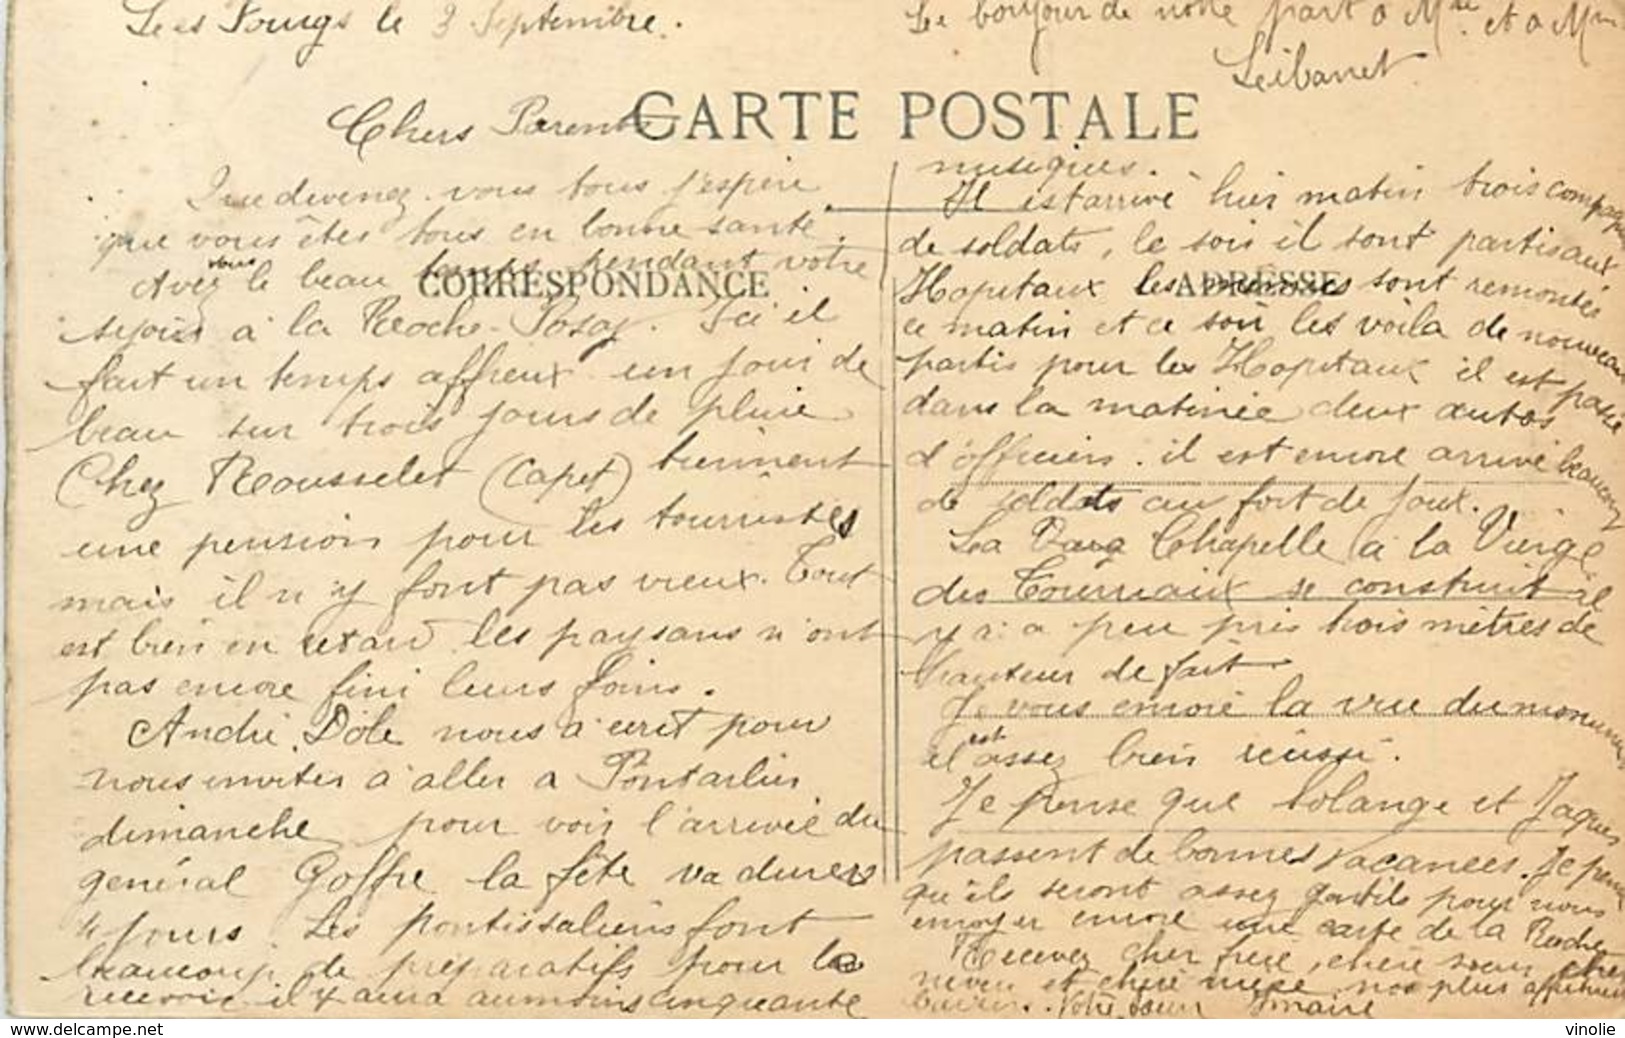 Les Fourgs le 3 Septembre.
Le bonjour de notre part a Mr. et a Mme
Leibanet
Chers Parents
CARTE POSTALE
Que devenez-vous tous j'espère
que vous êtes tous en bonne santé.
Avez vous le beau temps pendant votre
CORRESPONDANCE
séjour à la Roche-Posay. Ici il
fait un temps affreux un jour de
beau sur trois jours de pluie
Chez Rousselet (Capet) tiennent
une pension pour les tourristes
mais il n'y font pas vieux. Tout
est bien en retard les paysans n'ont
pas encore fini leurs foins.
André Dôle nous a écrit pour
nous inviter a aller a Pontarlier
dimanche pour voir l'arrivée du
général Goffre la fête va durer
4 jours. Les pontissaliens font
beaucoup de préparatifs pour le
recevoir il y aura aumoins cinquante
musiques.
Il est arrivé hier matin trois compagnies
de soldats, le soir il sont partis aux
ADRESSE
Hopitaux les mêmes sont remontés
ce matin et ce soir les voila de nouveau
partis pour les Hopitaux il est passé
dans la matinée deux autos
d'officiers. il est encore arrivé beaucoup
de soldats au fort de Joux.
La Chapelle a la Vierge
des Tourniaux se construit il
y a a peu près trois mètres de
hauteur de fait
Je vous envoie la vue du monument
il est assez bien réussi.
Je pense que Solange et Jaques
passent de bonnes vacances. Je pense
qu'ils seront assez gentils pour nous
envoyer encore une carte de la Roche
Recevez cher frère, chère sœur, cher
neveu et chère nièce nos plus affectueux
baisers. Votre sœur
vinolie
www.delcampe.net